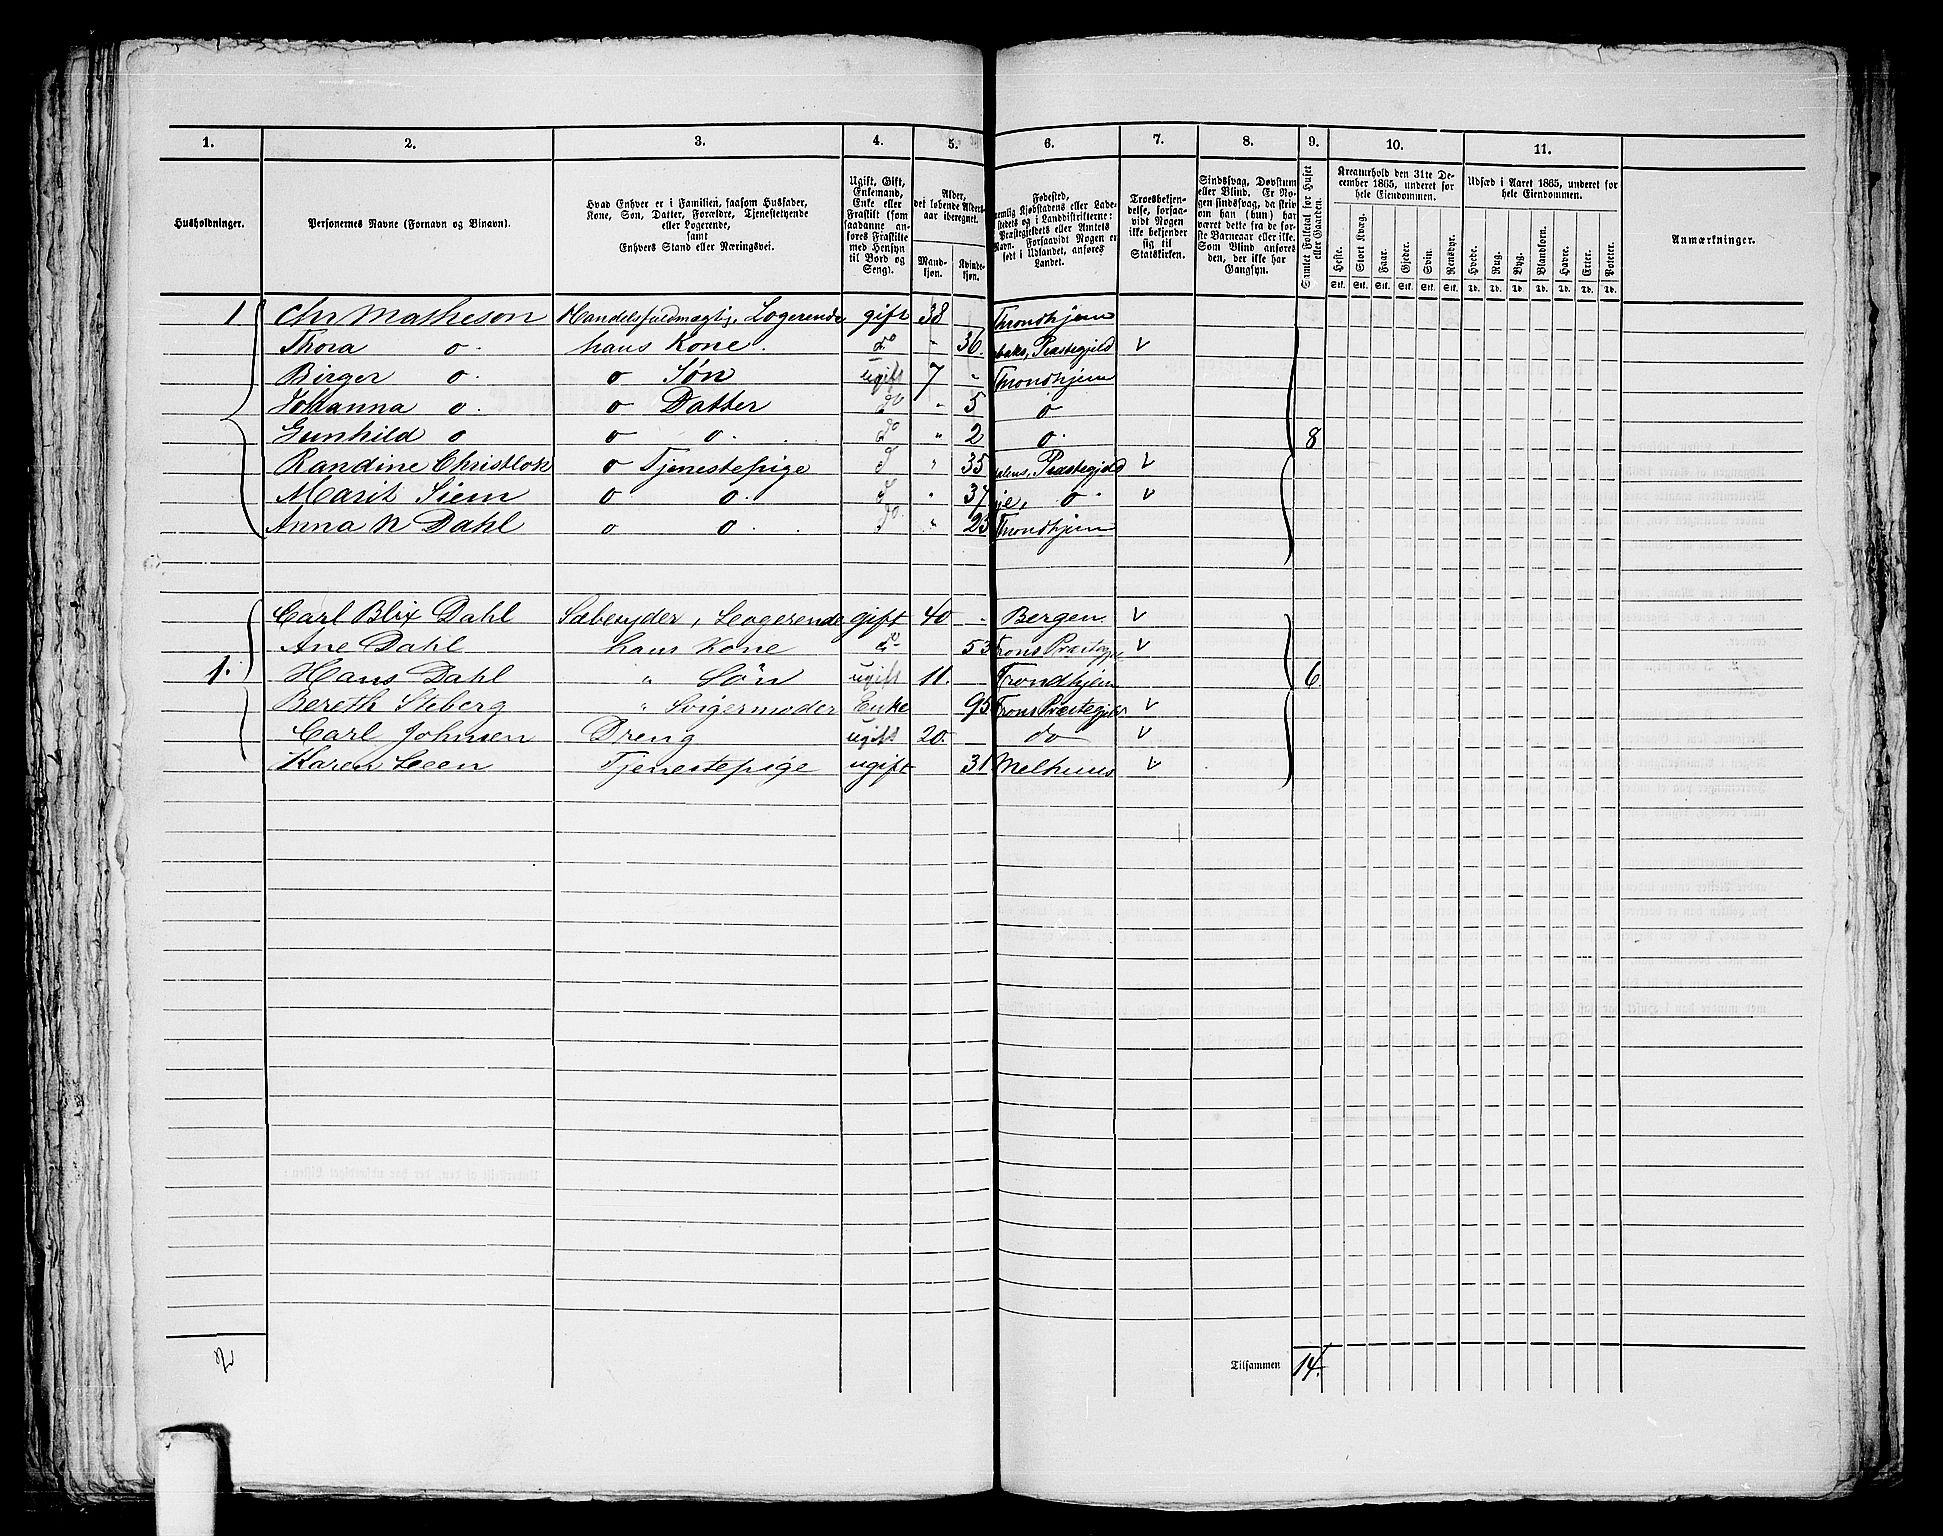 1. 2. 3. 4. 5. 6. 7. 8. 9. 10. 11.
Husholdninger.
Personernes Navne (Fornavn og Binavn).
Hvad Enhver er i Familien, saasom Husfader,
Kone, Søn, Datter, Forældre, Tjenestetyende
eller Logerende,
samt
Enhvers Stand eller Næringsvei.
Ugift, Gift,
Enkemand,
Enke eller
Fraskilt (som
saadanne an-
føres Fraskilte
med Hensyn
til Bord og
Seng).
Alder,
det løbende Alders-
aar iberegnet.
Mand-
kjøn.
Kvinde-
kjøn.
Fødested,
nemlig Kjøbstadens eller Lade-
stedets og i Landdistrikterne:
Præstegjeldets eller Amtets
Navn. Forsaavidt Nogen er
født i Udlandet, anføres
Landet.
Troesbekjen-
delse, forsaa-
vidt Nogen
ikke bekjender
sig til
Statskirken.
Sindssvag, Døvstum
eller Blind. Er No-
gen sindssvag, da skriv
om han (hun) har
været dette fra de før-
ste Barneaar eller ikke.
Som Blind anføres
den, der ikke har
Gangsyn.
Samlet Folketal for Huset
eller Gaarden.
Kreaturhold den 31te De-
cember 1865, underet for
hele Eiendommen.
Heste. Stort Kvæg. Faar. Gjeder. Svin. Rensdyr.
Stk. Stk. Stk. Stk. Stk. Stk.
Udsæd i Aaret 1865, underet for
hele Eiendommen.
Hvede. Rug. Byg. Blandkorn. Havre. Erter. Poteter.
Td. Td. Td. Td. Td. Td. Td.
Anmærkninger.
1 Chr Matheson Handelsfuldmægtig, Logerende gift 38 Throndhjem
Thora o hans Kone. do " 36. Præstegjeld v
Birger o. o Søn ugift 7 - Throndhjem
Johanna o. o Datter do " 5 o
Gunhild o o o. do " 2 o. 8
Randine o Tjenestepige d " 35 Præstegjeld v
Marit Siem o o. d " 37 o. v
Anna N Dahl o o. do " 23 Throndhjem
Carl Blix Dahl Sæbesyder, Logerende gift 40 - Bergen. v
Ane Dahl hans Kone do 53 v
1. Hans Dahl " Søn ugift 11. Trondhjem 6.
Bereth Steberg " Svigermoder Enke 95 v
Carl Johnsen Dreng ugift 20. do v
Karen Leen Tjenestepige ugift 31 Melhuus v
2 Tilsammen 14.